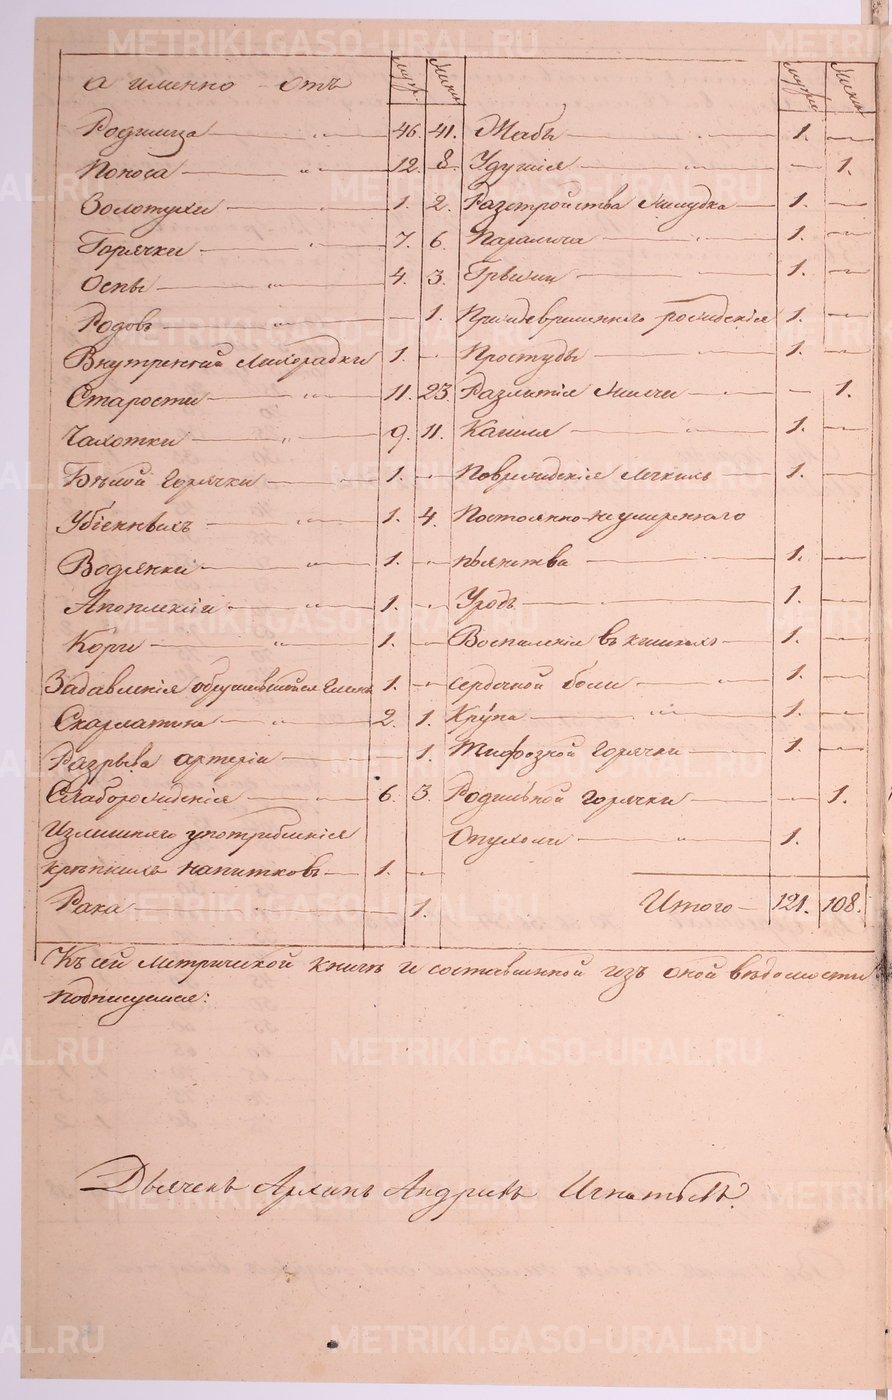 METRIKI.GASO-URAL.RU
а именно отъ
Родимца — " — 46. 41.
Поноса — " — 12. 8.
Золотухи — " — 1. 2.
Горячки — " — 7. 6.
Оспы — " — 4. 3.
Родовъ — " — 1.
Внутренней Лихорадки 1. —
Старости — " — 11. 23.
Чахотки — " — 9. 11.
Бѣлой Горячки — " — 1. —
Убіенныхъ — " — 1. 4.
Водянки — " — 1. —
Апоплексіи — " — 1. —
Кори — " — 1. —
1. —
Скарлатина — " — 2. 1.
Разрыва артеріи — 1.
Слаборожденія — " — 6. 3.
Излишняго употребленія
крѣпкихъ напитковъ — 1. —
Рака — " — 1.
Жабы — " — 1. —
Удушія — " — 1.
Разстройства Желудка — 1. —
Паралича — " — 1. —
Грыжи — " — 1. —
Преждевременнаго рожденія 1. —
Простуды — " — 1. —
Разлитія Желчи — 1.
Кашля — " — 1. —
Поврежденія легкихъ 1. —
Постоянно-неумереннаго
пьянства — 1. —
Уродъ — 1. —
Воспаленія въ кишкахъ — 1. —
Сердечной боли — " — 1. —
Крупа — " — 1. —
Тифозной Горячки — 1. —
Родильной Горячки — 1.
Опухоли — " — 1.
Итого — 121. 108.
Къ сей метрической книгѣ и составленной изъ оной вѣдомости
подписуемся:
Дьячекъ Архипъ Андреевъ Игнатьевъ.